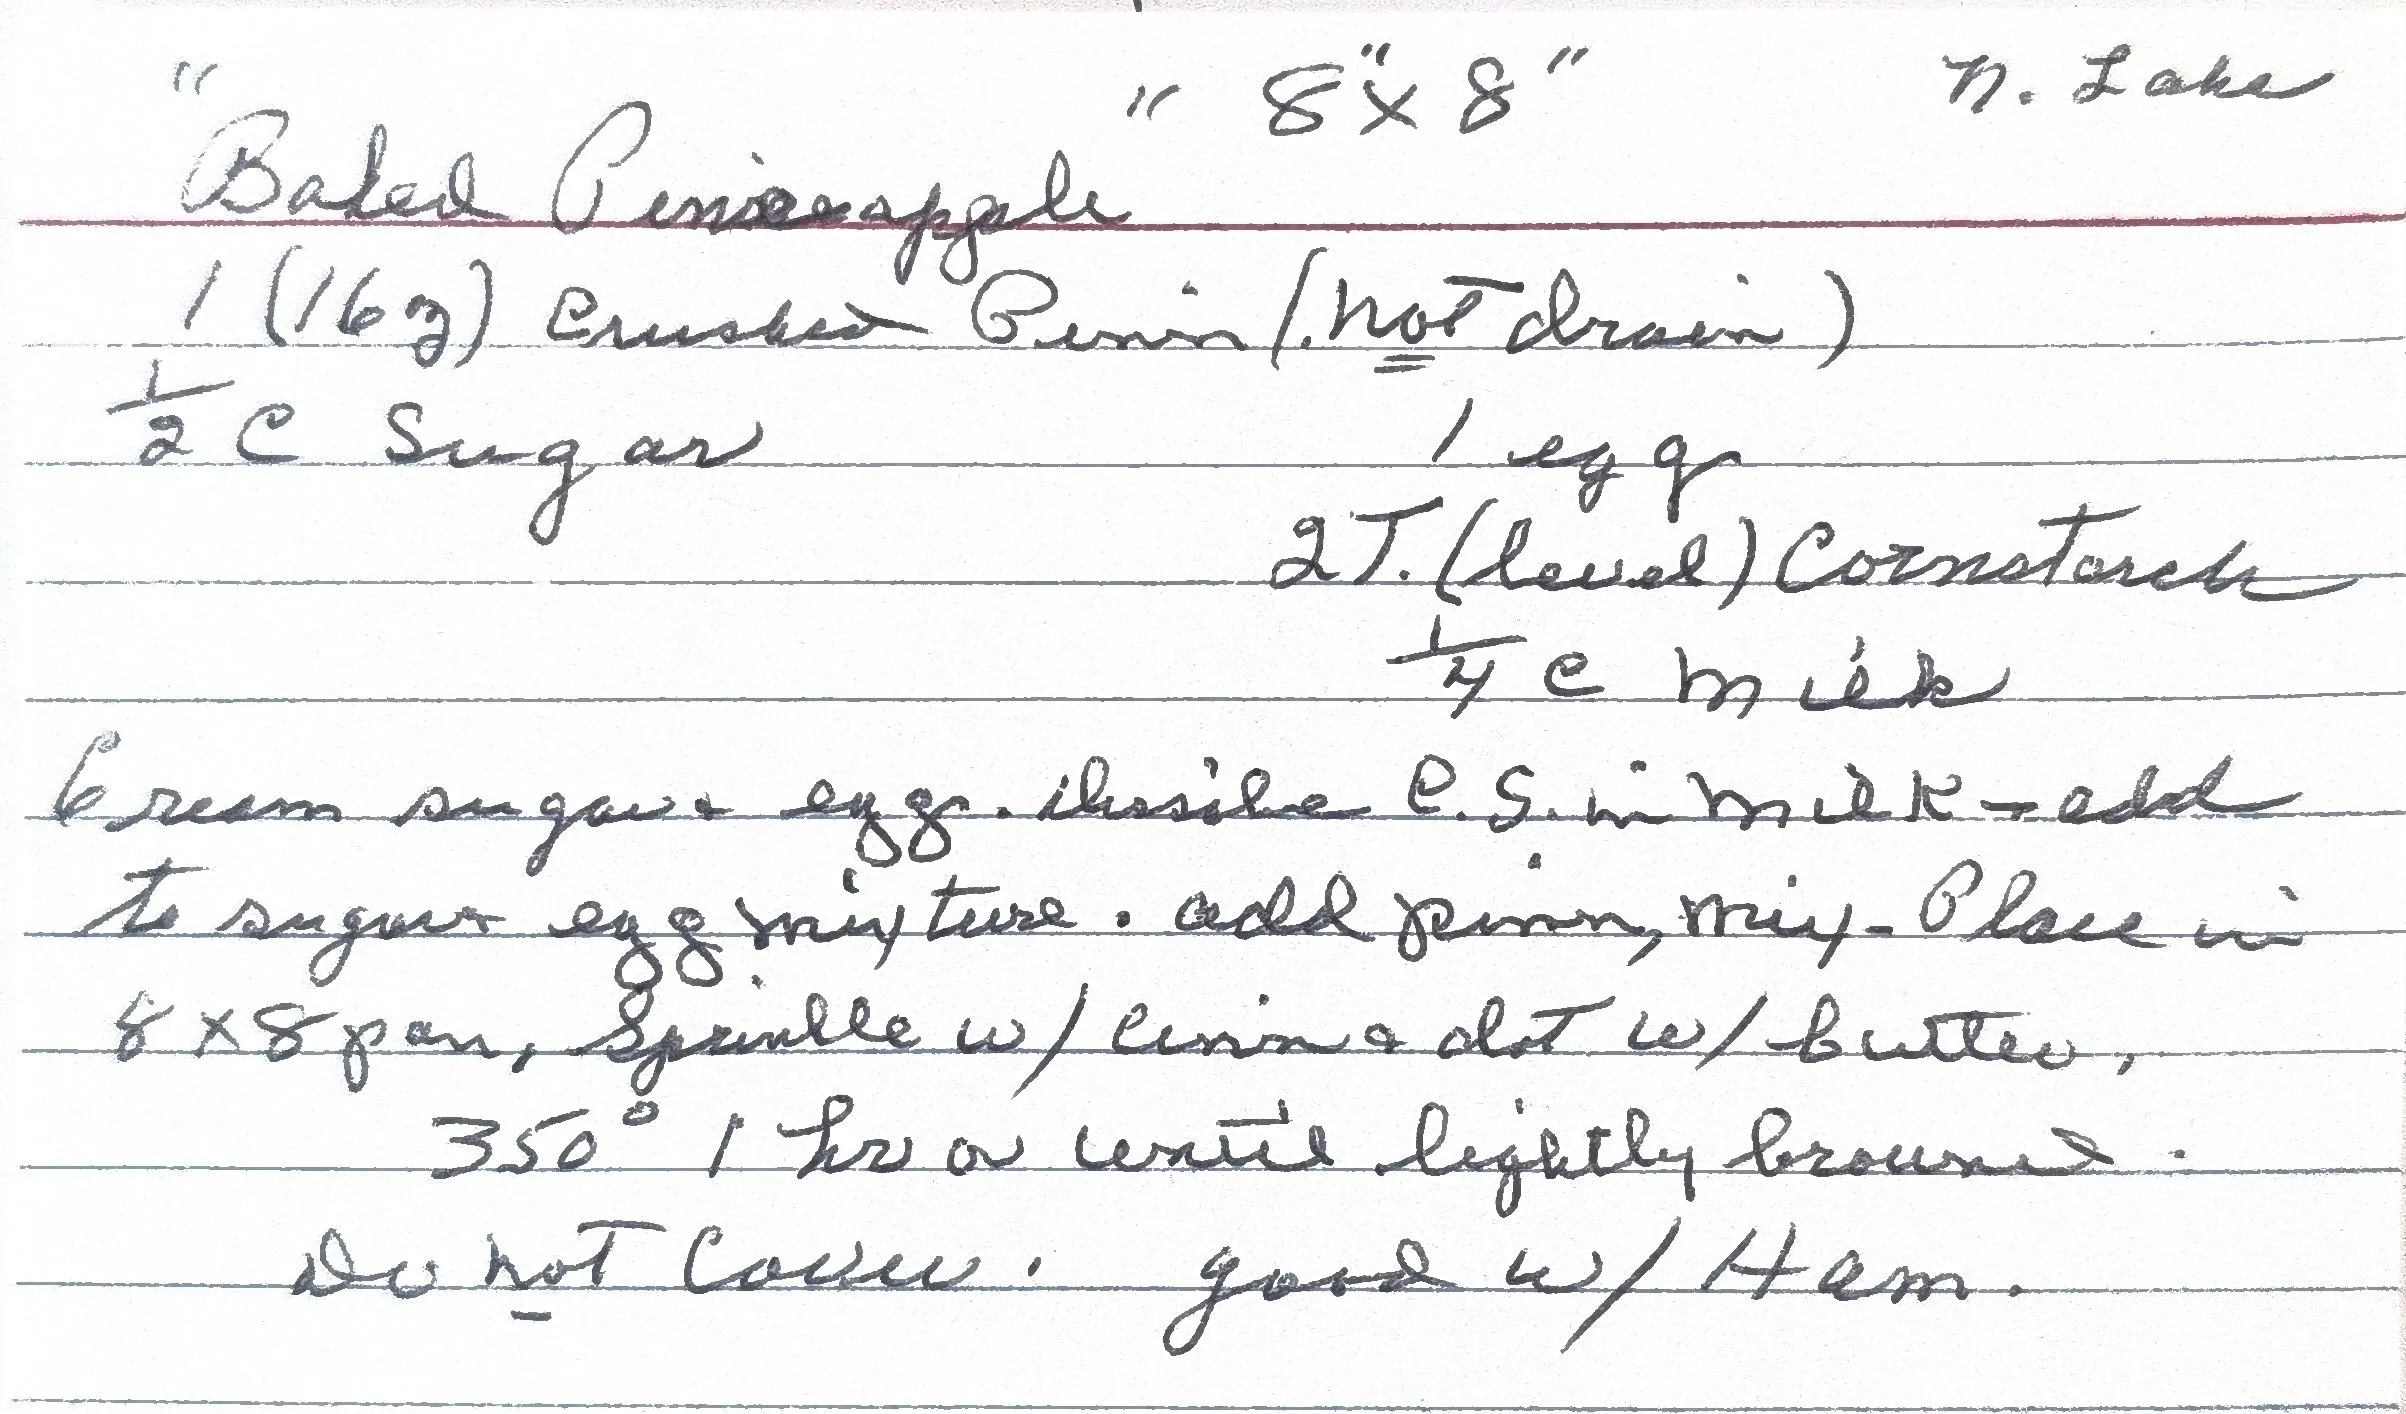 " " 8" x 8" N. Lake
Baked Pineapple
1 (16 oz) Crushed Pinin (. not drain)
1/2 C Sugar 1 egg
2 T. (level) Cornstarch
1/4 C Milk
Cream sugar & egg. dissolve C.S. in Milk - add
to sugar & egg mixture. add pinin, mix - Place in
8 x 8 pan, Sprinkle w/ Cinn & dot w/ butter.
350° 1 hr or until lightly browned.
Do not Cover. good w/ Ham.